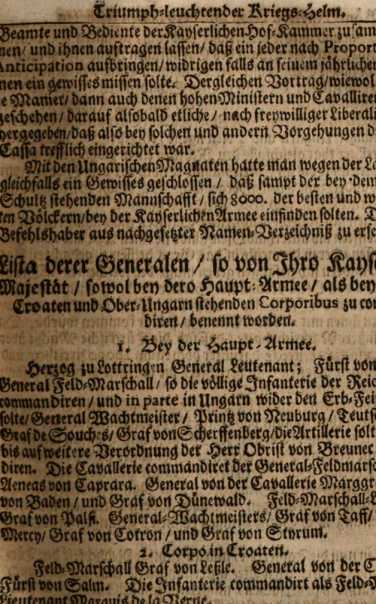 Triumph-leuchtender Kriegs-Helm.
Beamte und Bediente der Kayserlichen Hof-Kammer zusam
nen/ und ihnen auftragen lassen/ daß ein jeder nach Proport
Anticipation aufbringen/ widrigen falls an seinem jährlichen
nen ein gewisses missen solte. Dergleichen Vortrag/ wiewol
e Manier/ dann auch denen hohen Ministern und Cavallire
geschehen/ darauf alsobald etliche/ nach freywilliger Liberali
hergegeben/ daß also bey solchen und andern Vorgehungen d
Cassa trefflich eingerichtet war.
Mit den Ungarischen Magnaten hatte man wegen der L
gleichfalls ein Gewisses geschlossen/ daß sampt der bey dem
Schultz stehenden Mannschafft/ sich 8000. der besten und w
ten Völckern/ bey der Kayserlichen Armee einfinden solten. D
Befehlshaber aus nachgesetzter Namen-Verzeichniß zu erse
Lista derer Generalen/ so von Ihro Kays
Majestät/ sowol bey dero Haupt-Armee/ als bey
Croaten und Ober-Ungarn stehenden Corporibus zu co
diren/ benennt worden.
1. Bey der Haupt-Armee.
Herzog zu Lottringen General Leutenant; Fürst von
General Feld-Marschall/ so die völlige Infanterie der Reic
commandiren/ und in parte in Ungarn wider den Erb-Fei
solte/ General Wachtmeister/ Printz von Neuburg/ Teutsc
Graf de Souches/ Graf von Scherffenberg/ die Artillerie solt
bis auf weitere Verordnung der Herr Obrist von Breuner
diren. Die Cavallerie commandiret der General-Feldmarsc
Aeneas von Caprara. General von der Cavallerie Marggr
von Baden/ und Graf von Dünewald. Feld-Marschall-L
Graf von Palfi. General-Wachtmeisters/ Graf von Taff/
Mercy/ Graf von Cotron/ und Graf von Styrum.
2. Corpo in Croaten.
Feld-Marschall Graf von Leßle. General von der C
Fürst von Salm. Die Infanterie commandirt als Feld-M
Lieutenant Marquis de la Verne.